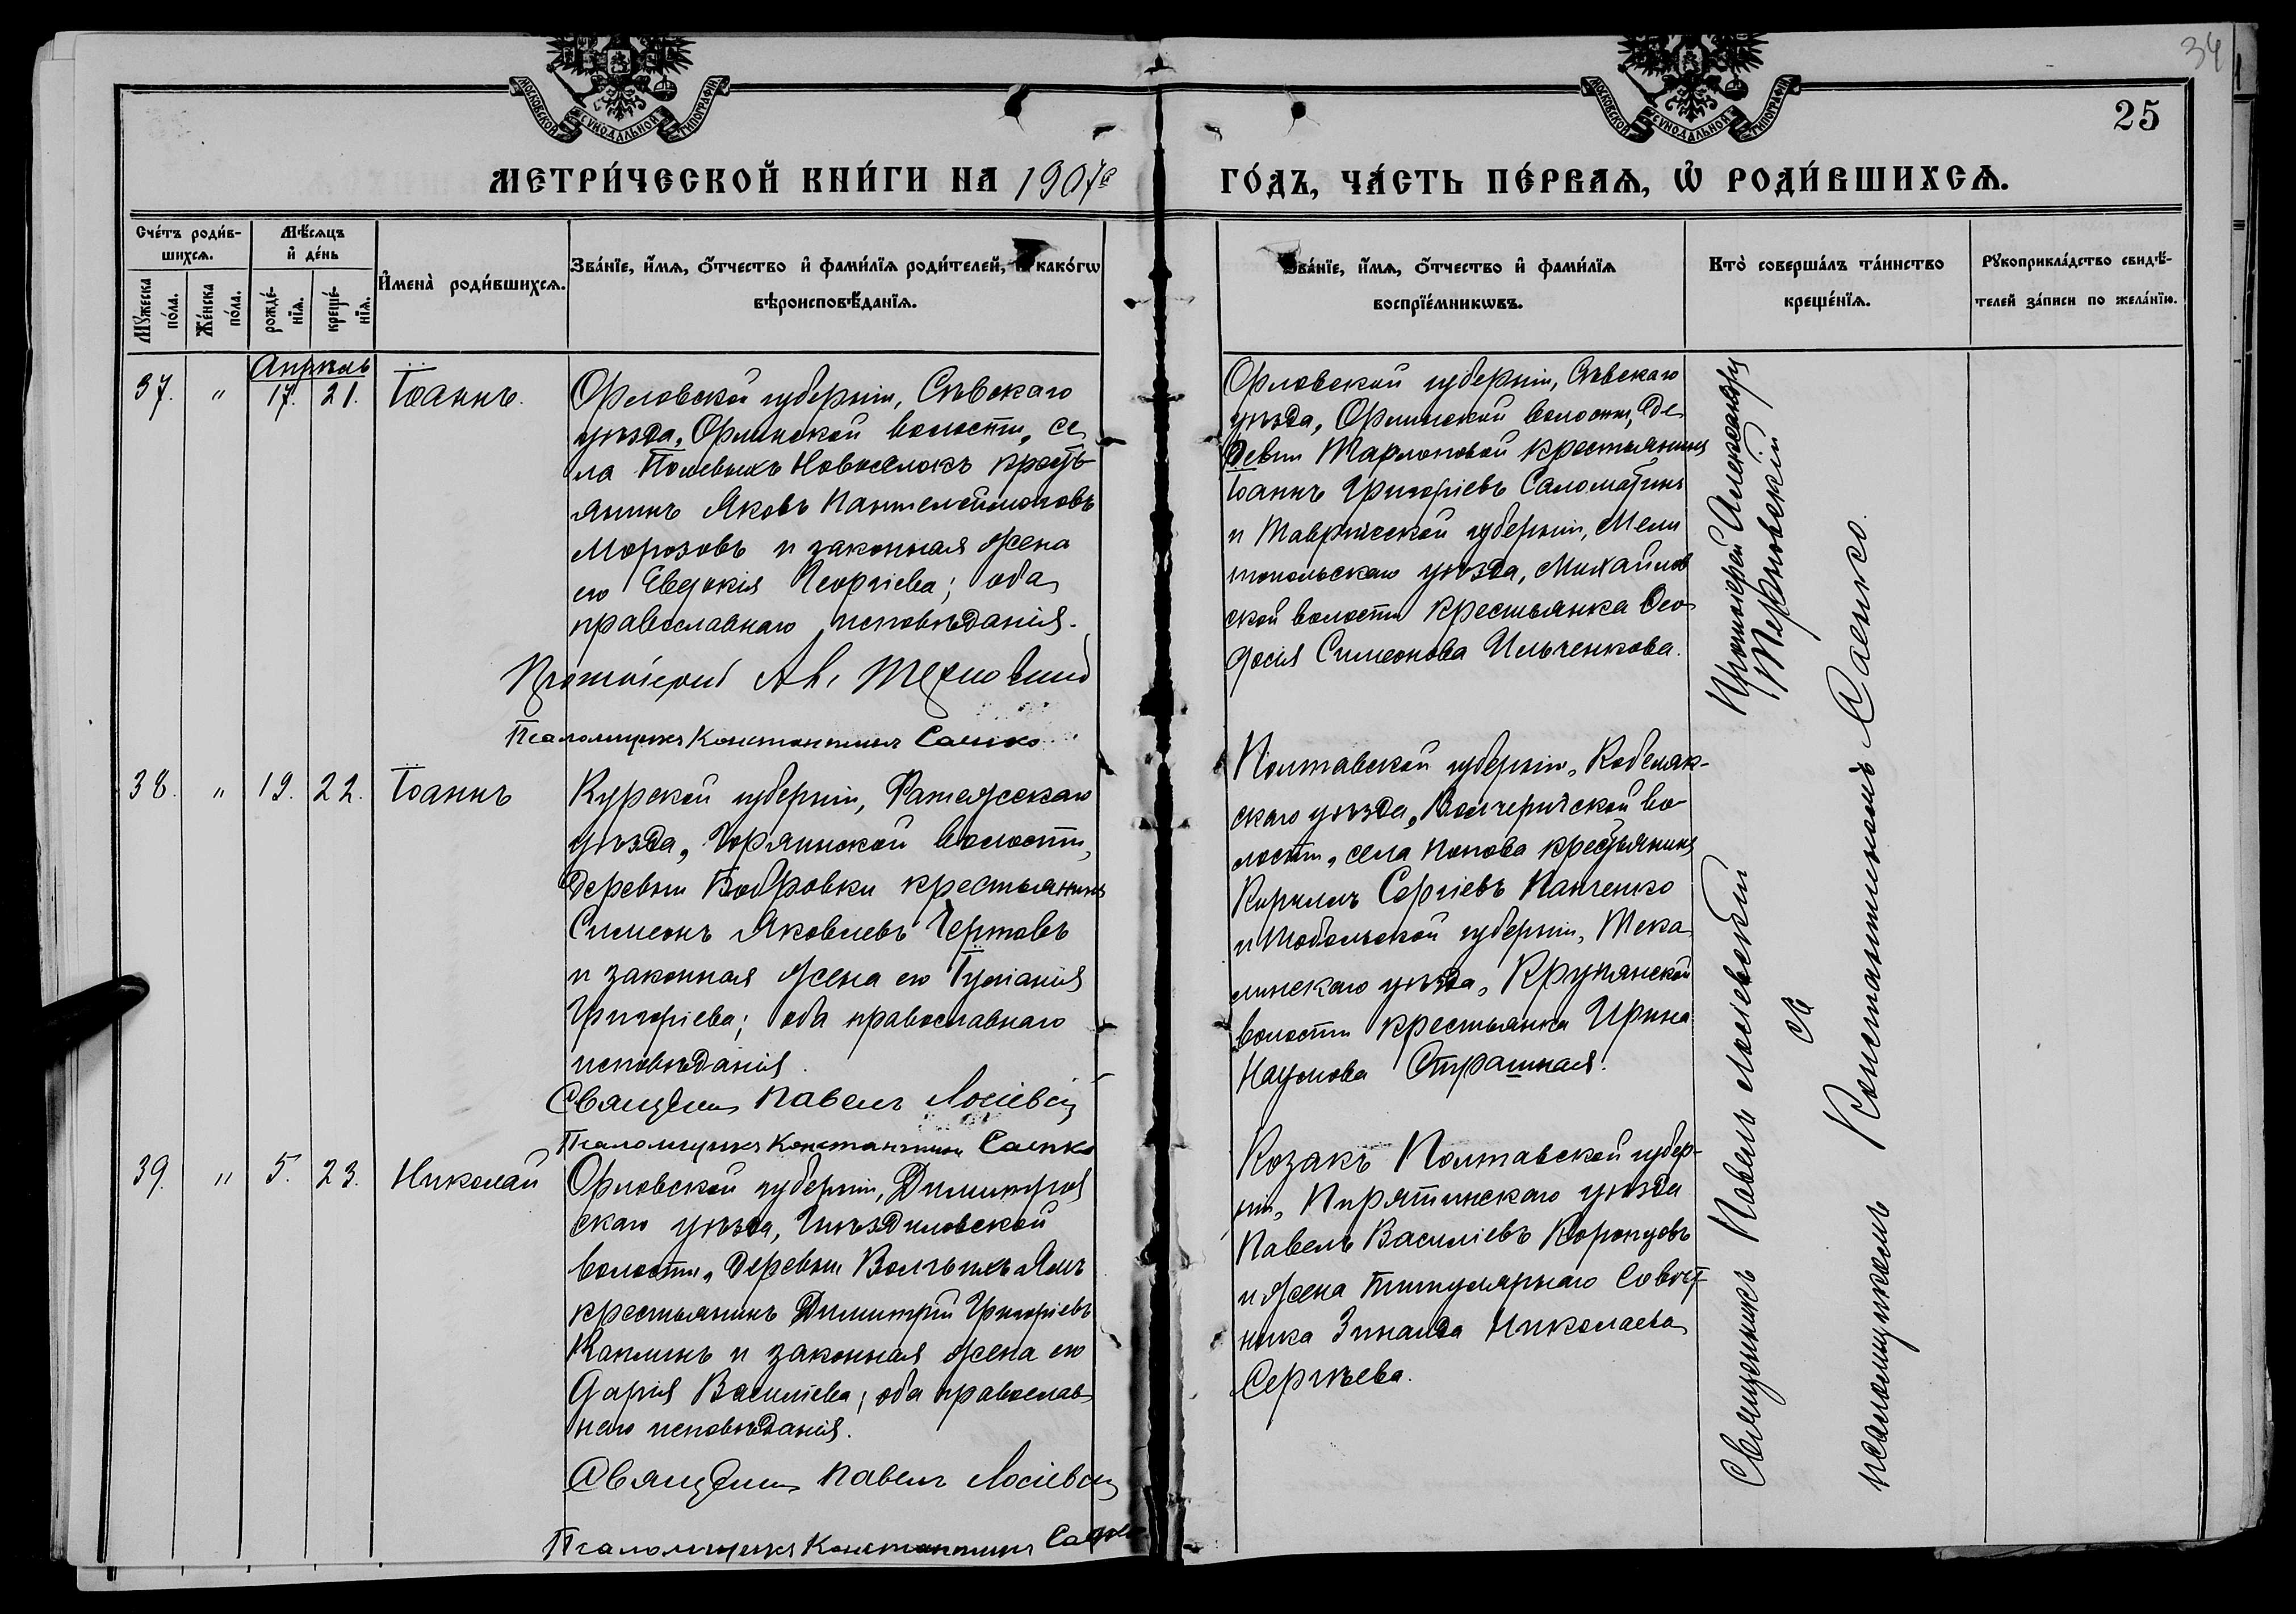 34
25
МОСКОВСКОЙ СѴНОДАЛЬНОЙ ТИПОГРАФІИ
МОСКОВСКОЙ СѴНОДАЛЬНОЙ ТИПОГРАФІИ
МЕТРИ́ЧЕСКОЙ КНИ́ГИ НА 1907й
ГО́ДЪ, ЧА́СТЬ ПЕ́РВАѦ, Ѡ҆ РОДИ́ВШИХСѦ.
Сче́тъ роди́в-
шихсѧ.
Мꙋ́жеска по́ла.
Же́нска по́ла.
Мѣ́сѧцъ
и҆ де́нь
рожде́-
нїѧ.
креще́-
нїѧ.
И҆мена̀ роди́вшихсѧ.
Зва́нїе, и҆́мѧ, ѻ҆́тчество и҆ фами́лїѧ роди́телей, и҆ како́гѡ
вѣроисповѣ́данїѧ.
Зва́нїе, и҆́мѧ, ѻ҆́тчество и҆ фами́лїѧ
воспрїе́мникѡвъ.
Кто̀ соверша́лъ та́инство
креще́нїѧ.
Рꙋкоприкла́дство свидѣ́-
телей за́писи по жела́нїю.
Апрѣль
37. " 17. 21. Іоаннъ.
Орловской губерніи, Сѣвскаго
уѣзда, Орлинской волости, се
ла Полевыхъ Новоселокъ кресть
янинъ Яковъ Пантелеймоновъ
Морозовъ и законная жена
его Евдокія Георгіева; оба
православнаго исповѣданія.
Протоіерей Ал. Терновскій
Псаломщикъ Константинъ Саенко
Орловской губерніи, Сѣвскаго
уѣзда, Орлинской волости, де
ревни крестьянинъ
Іоаннъ Григоріевъ Саломатинъ
и Таврической губерніи, Мели
топольскаго уѣзда, Михайлов
ской волости крестьянка Ѳео
досія Симеонова Ильченкова.
Протоіерей Александръ
Терновскій
38. " 19. 22. Іоаннъ
Курской губерніи, Фатежскаго
уѣзда, Горяинской волости,
деревни Бобровки крестьянинъ
Симеонъ Яковлевъ Чертовъ
и законная жена его Іуліанія
Григоріева; оба православнаго
исповѣданія.
Священникъ Павелъ Лосіевскій
Псаломщикъ Константинъ Саенко
Полтавской губерніи, Кобеляк-
скаго уѣзда, во
лости, села Попова крестьянинъ
Кириллъ Сергіевъ Панченко
и Тобольской губерніи, Тюка
линскаго уѣзда, Крупянской
волости крестьянка Ирина
Наумова Страшная.
39. " 5. 23. Николай
Орловской губерніи, Димитров
скаго уѣзда, Гнѣздиловской
волости, деревни Волчьихъ Ямъ
крестьянинъ Димитрій Григоріевъ
Каплинъ и законная жена его
Дарія Василіева; оба православ
наго исповѣданія.
Священникъ Павелъ Лосіевскій
Псаломщикъ Константинъ Саенко
Козакъ Полтавской губер-
ніи, Пирятинскаго уѣзда
Павелъ Василіевъ
и жена Титулярнаго Совѣт
ника Зинаида Николаева
Сергѣева.
Священникъ Павелъ Лосіевскій
съ
псаломщикомъ Константиномъ Саенко.